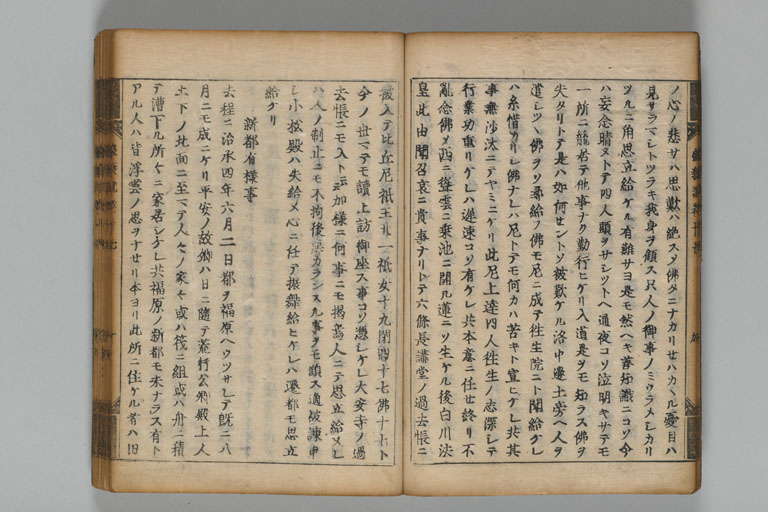 ノ心ノ悲サハ思歎ハ絶スソ佛タニナカリせハカヽル憂目ハ
見サラマシトツラキ我身ヲ顧ス只人ノ御事ノミウラメシカリ
ツルニ角思立給ケル有難サヨ是モ然ヘキ善知識ニコソ今
ハ妄念晴ヌトテ四人頭ヲサシツトヘ通夜コソ泣明キサテモ
一所ニ籠居テ他事ナク勤行ヒケリ入道是ヲモ知ラス佛ヲ
失タリトテ是ハ如何せントソ被歎ケル洛中邊土旁ヘ人ヲ
遣シツヽ佛ヲソ尋給フ佛モ尼ニ成テ往生院ニト聞給グレ
ハ糸惜カリシ佛ナレハ尼トテモ何カハ苦キト宣ヒケレ共其
事無沙汰ニテヤミニケリ此尼上達四人往生ノ志深シテ
行業功重リケレハ遅速コソ有ケレ共本意ニ任せ終リ不
乱念佛ノ西ニ聳雲ニ乗池ニ開ル蓮ニソ生ケル後白川法
皇此由聞召哀ニ貴事ナリトテ六條長講堂ノ過去帳ニ
被入テ比丘尼祇王廿一祇女十九閇四十七佛十七ト
今ノ世マテモ讀上訪御座ス事コソ憑シケレ大安寺ノ過
去帳ニモ入トニ加様ニ何事ニモ搆為人ニテ思立給メレ
ハ人ノ制止ニモ不拘後深カランスル事ヲモ顧ス適被諫申
シ小松殿ハ失給メ心ニ任テ振舞給ヒケレハ遷都モ思立
給ケリ
新都有様事
去程ニ治承四年六月二日都ヲ福原ヘウツサレテ既ニ八
月ニモ成ニケリ平安ノ故郷ハ日ニ随テ荒行公卿殿上人
上下ノ北面ニ至マテ人々ノ家々或ハ筏ニ組或ハ舟ニ積
テ漕下ル所々ニ家居シケレ共福原ノ新都モ未ナラス有ト
アル人ハ皆浮雲ノ思ヲナせリ本ヨリ此所ニ住ケル者ハ旧